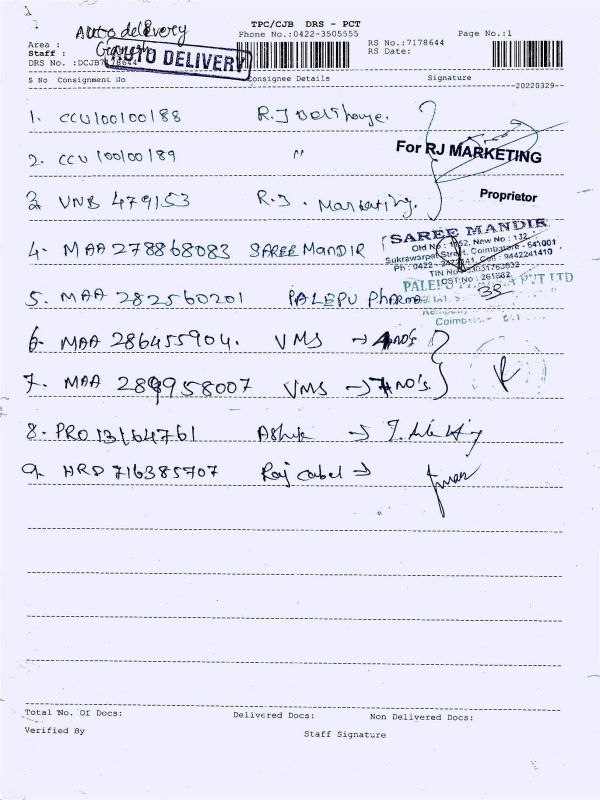 Auto delevery TPC/CJB DRS - PCT
Phone No.:0422-3505555 Page No.:1
Area : RS No.:7178644
Staff : Ganesh RS Date:
DRS No. :DCJB7178644 AUTO DELIVERY
S No Consignment No Consignee Details Signature
20220329
1. CCU100100188 R.J
2. CCU 100100189 "
For RJ MARKETING
3. VNB 479153 R.J. Marketing.
Proprietor
4. MAA 278868083 SAREE MANDIR SAREE MANDIR
Old No : 1252, New No : 132,
Sukrawarpet Street, Coimbatore - 641001
Ph : 0422 - Cell : 9442241410
TIN No
CST No : 261882
5. MAA 282560201 PALEPU Pharma PALEPU PHARMA PVT LTD
6. MAA 286455904. VMS → 4 no's
7. MAA 289958007 VMS → 7 no's
8. PRO 13164761 Ashik →
9. HRD 716385707 Raj cabel →
Total No. Of Docs: Delivered Docs: Non Delivered Docs:
Verified By Staff Signature